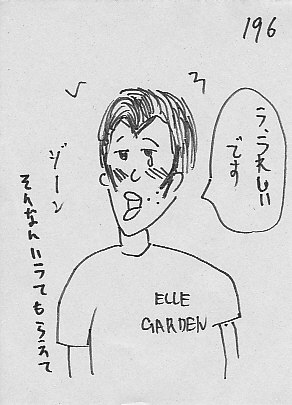 196
う、うれしい
です
ジーン
そんなんいうてもらえて
ELLE
GARDEN